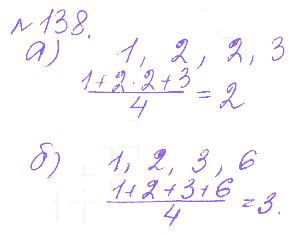 №138.
а) 1, 2, 2, 3
1+2·2+3
4 = 2
б) 1, 2, 3, 6
1+2+3+6
4 = 3.